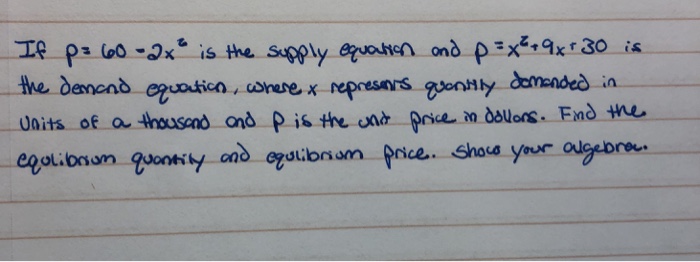 If p = 60 - 2x² is the supply equation and p = x² + 9x + 30 is
the demand equation, where x represents quantity demanded in
units of a thousand and P is the unit price in dollars. Find the
equlibrium quantity and equlibrium price. Show your algebra.